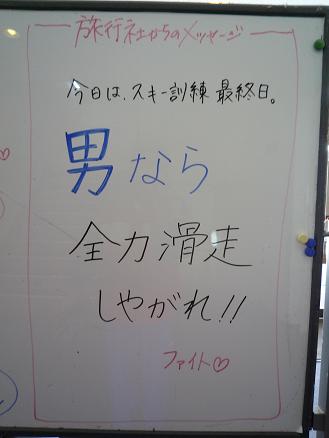 旅行社からのメッセージ
今日は、スキー訓練 最終日。
男なら
全力滑走
しやがれ!!
ファイト♡